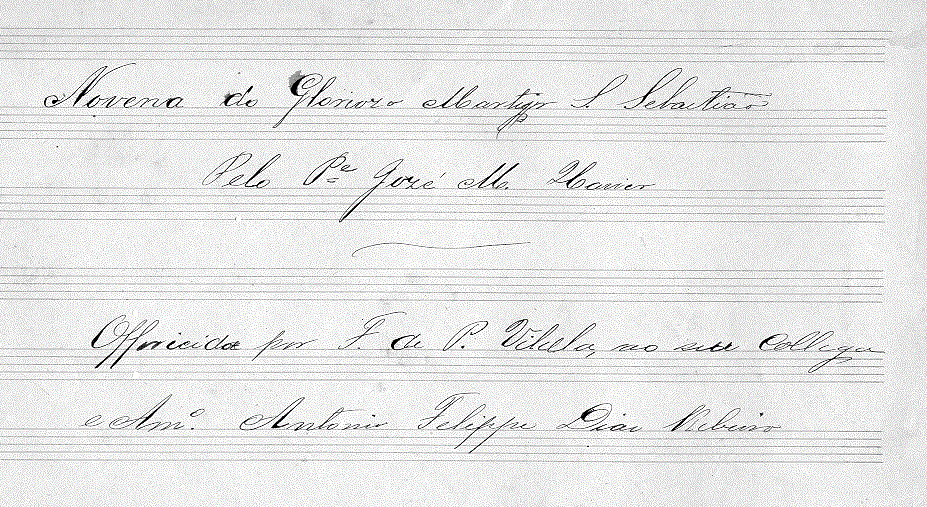 Novena do Gloriozo Martyr S. Sebastião
Pelo Pe José M. Xavier
Offericida por F. de P. Vilella, no seu Collega
e Amo. Antonio Felippe Dias Ribeiro